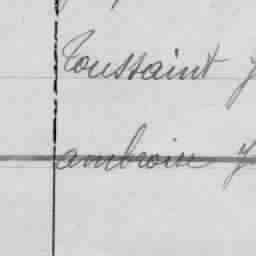 Toussaint J
ambroise J